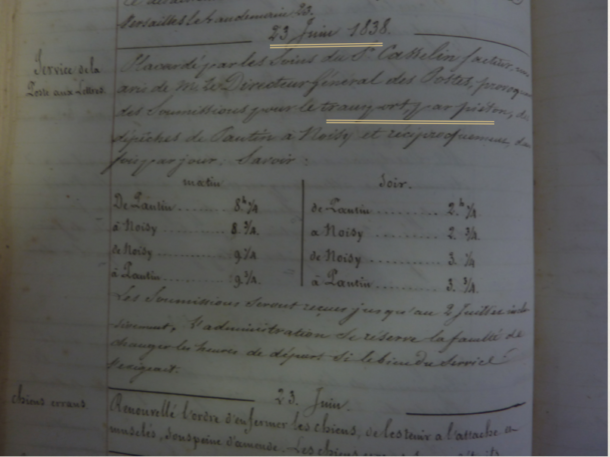 Versailles le
23 Juin 1838.
Service de la
Poste aux Lettres
Placardé par les Soins du Sr. Casselin facteur, un
avis de Mr. le Directeur Général des Postes, provoquant
des Soumissions pour le transport par piéton, de
dépêches de Pantin à Noisy et réciproquement, deux
fois par jour. Savoir :
matin
De Pantin ........ 8h 1/4
à Noisy ........ 8. 3/4
de Noisy ........ 9 1/4
à Pantin ........ 9 3/4
Soir.
de Pantin ........ 2.h 1/4
à Noisy ........ 2. 3/4
de Noisy ........ 3. 1/4
à Pantin ........ 3. 3/4
Les Soumissions Seront reçues jusqu'au 2 Juillet inclu
sivement, l'administration se réserve la faculté de
changer les heures de départ Si le bien du Service
l'exigeait.
23. Juin.
chiens errans
Renouvellé l'ordre d'enfermer les chiens, de les tenir à l'attache ou
muselés, sous peine d'amende. Les chiens